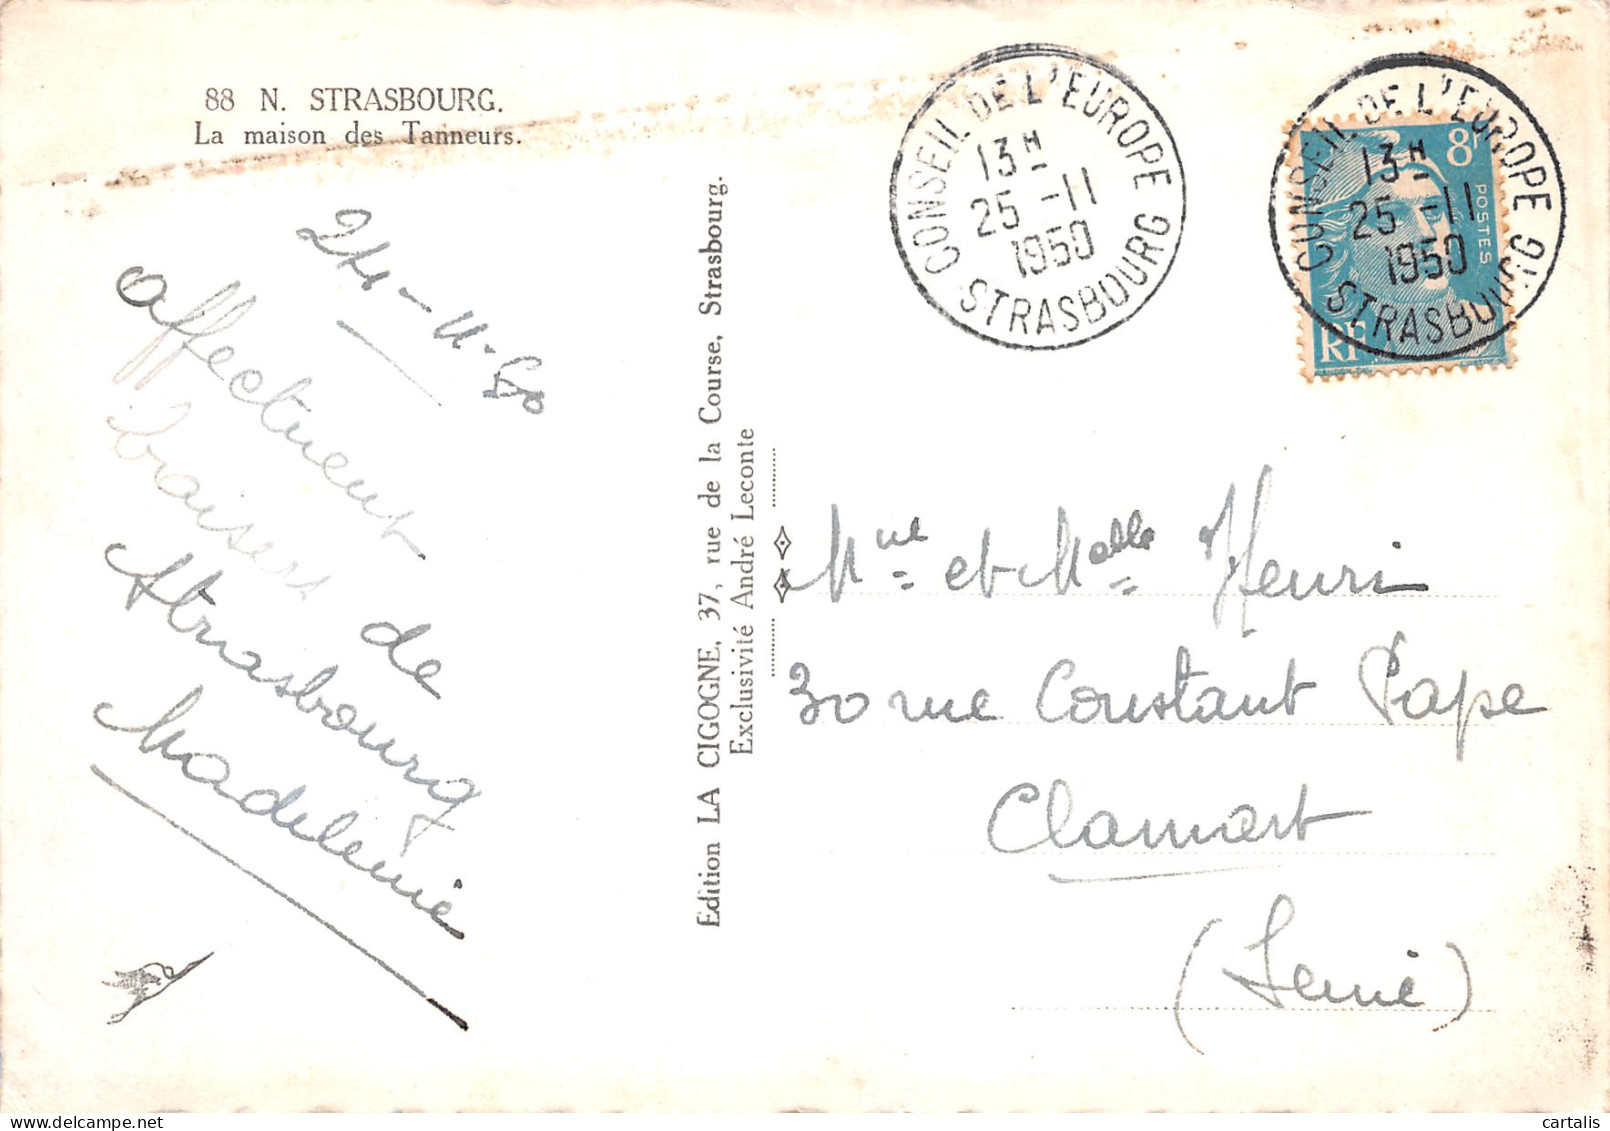 88 N. STRASBOURG.
La maison des Tanneurs.
24-11-50
affectueux
baisers de
Strasbourg
Madeleine
Edition LA CIGOGNE, 37, rue de la Course, Strasbourg.
Exclusivité André Leconte
CONSEIL DE L'EUROPE
13H
25-11
1950
STRASBOURG
CONSEIL DE L'EUROPE
13H
25-11
1950
STRASBOURG
8F
POSTES
RF
Mme et Melle Henri
30 rue Constant Pape
Clamart
(Seine)
cartalis